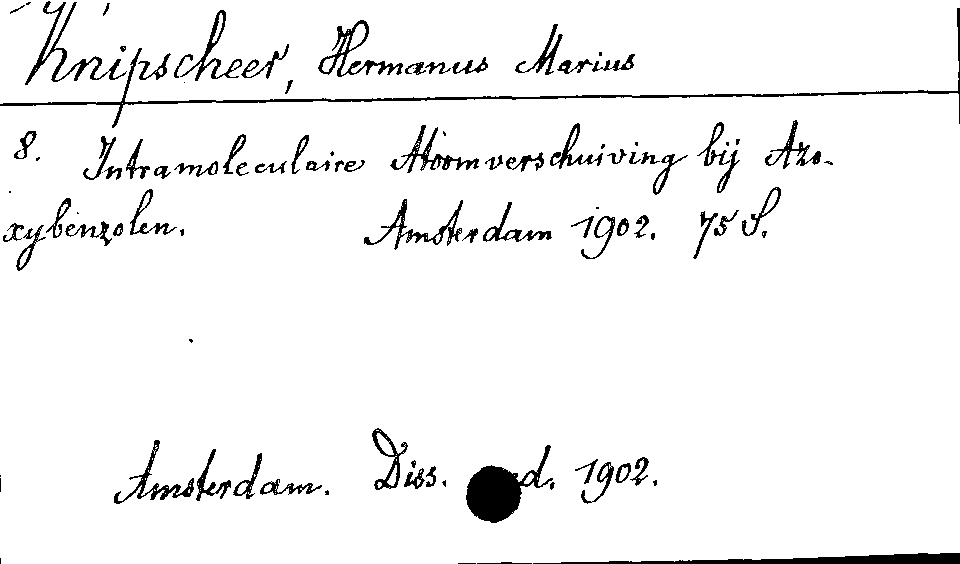 Knipscheer, Hermanus Marius
8. Intramoleculaire Atoomverschuiving bij Azo-
xybenzolen. Amsterdam 1902. 75 S.
Amsterdam. Diss. 1902.